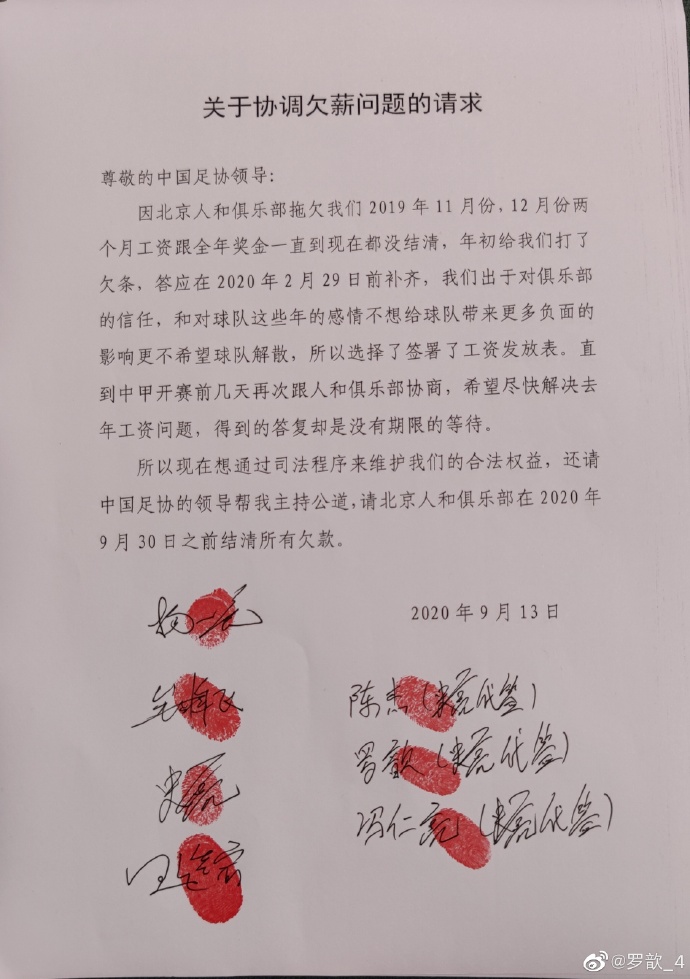 关于协调欠薪问题的请求
尊敬的中国足协领导：
因北京人和俱乐部拖欠我们 2019 年 11 月份，12 月份两
个月工资跟全年奖金一直到现在都没结清，年初给我们打了
欠条，答应在 2020 年 2 月 29 日前补齐，我们出于对俱乐部
的信任，和对球队这些年的感情不想给球队带来更多负面的
影响更不希望球队解散，所以选择了签署了工资发放表。直
到中甲开赛前几天再次跟人和俱乐部协商，希望尽快解决去
年工资问题，得到的答复却是没有期限的等待。
所以现在想通过司法程序来维护我们的合法权益，还请
中国足协的领导帮我主持公道，请北京人和俱乐部在 2020 年
9 月 30 日之前结清所有欠款。
2020 年 9 月 13 日
陈杰（史亮代签）
罗歆（史亮代签）
史亮
冯仁亮（史亮代签）
@罗歆_4